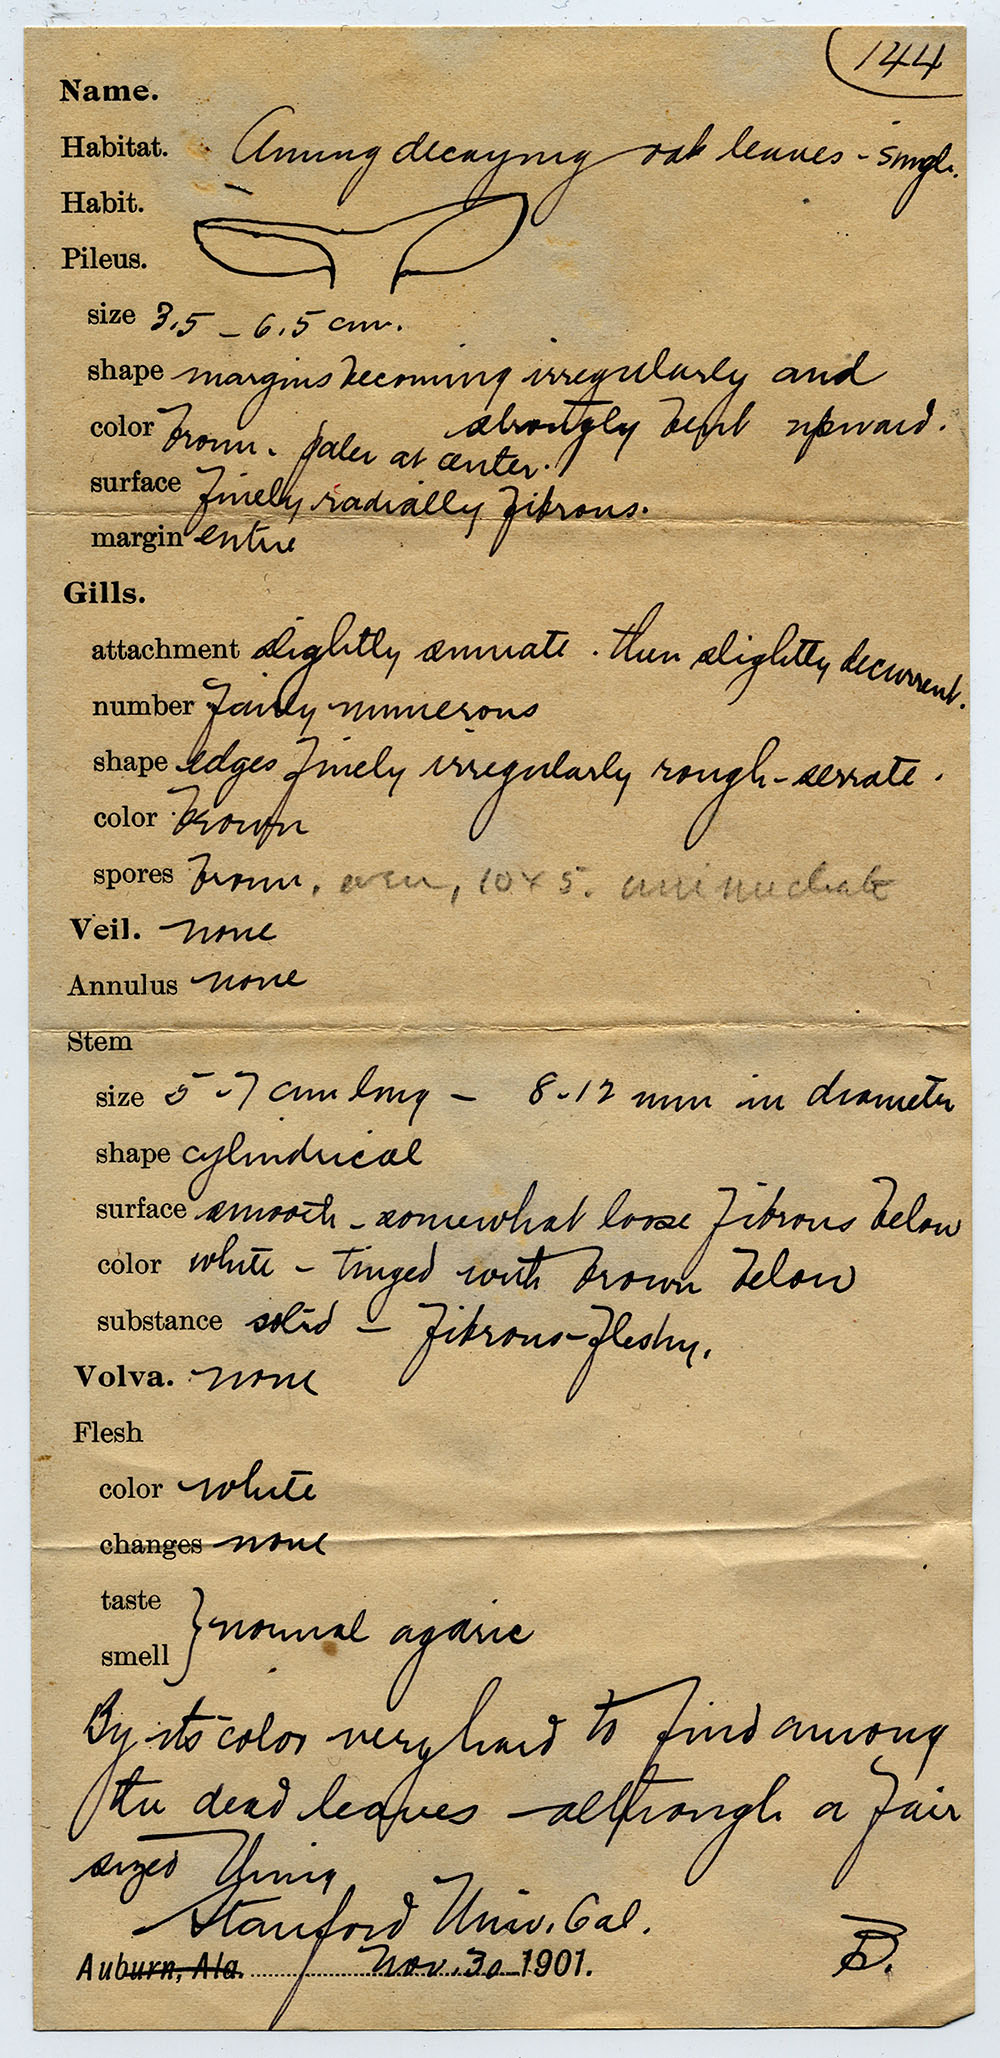 144
Name.
Habitat. Among decaying oak leaves - single.
Habit.
Pileus.
size 3.5 - 6.5 cm.
shape margins becoming irregularly and
strongly bent upward.
color brown. paler at center.
surface finely radially fibrous.
margin entire
Gills.
attachment slightly sinuate. then slightly decurrent.
number fairly numerous
shape edges finely irregularly rough-serrate.
color brown
spores brown, even, 10 x 5.
Veil. none
Annulus none
Stem
size 5-7 cm long - 8-12 mm in diameter
shape cylindrical
surface smooth - somewhat loose fibrous below
color white - tinged with brown below
substance solid - fibrous-fleshy.
Volva. none
Flesh
color white
changes none
taste
smell } normal agaric
By its color very hard to find among
the dead leaves - although a fair
sized thing
Stanford Univ. Cal.
Auburn, Ala. Nov. 30 1901.
B.